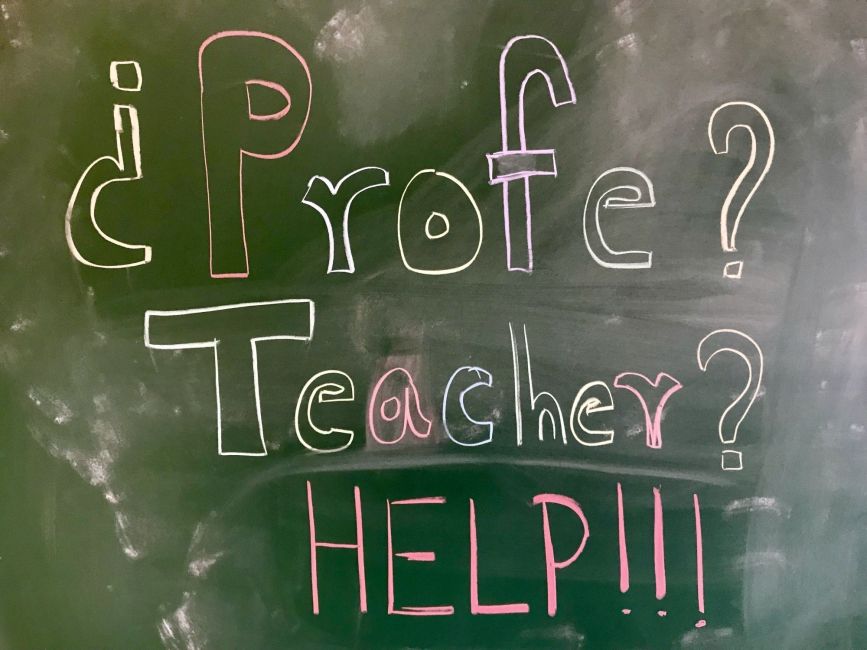 ¿Profe?
Teacher?
HELP!!!